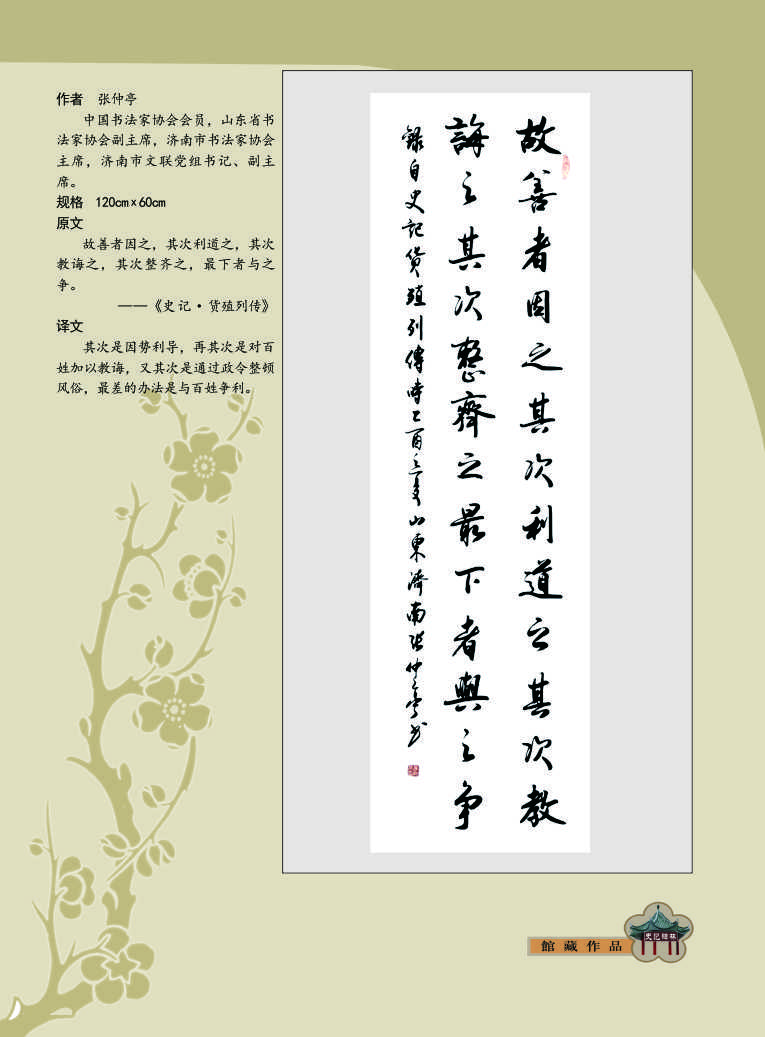 作者 张仲亭
中国书法家协会会员，山东省书
法家协会副主席，济南市书法家协会
主席，济南市文联党组书记、副主
席。
规格 120cm×60cm
原文
故善者因之，其次利道之，其次
教诲之，其次整齐之，最下者与之
争。
——《史记·货殖列传》
译文
其次是因势利导，再其次是对百
姓加以教诲，又其次是通过政令整顿
风俗，最差的办法是与百姓争利。
故善者因之其次利道之其次教
誨之其次整齊之最下者與之争
錄自史記貨殖列傳時乙酉之夏山東濟南張仲亭书
館藏作品
史记碑林